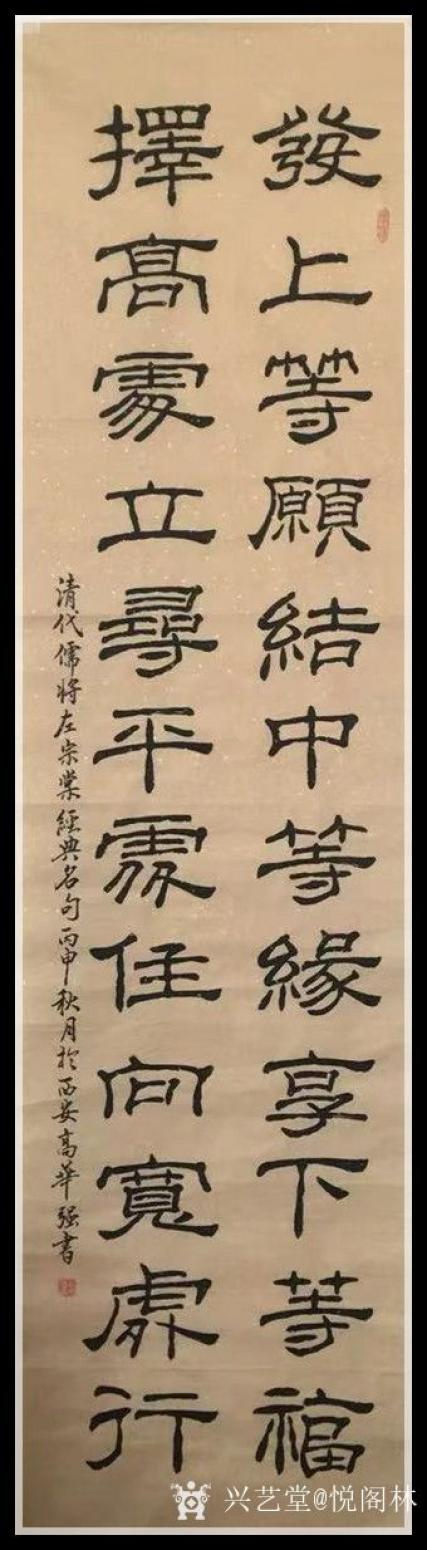 發上等願結中等緣享下等福
擇高處立尋平處住向寬處行
清代儒將左宗棠經典名句丙申秋月於西安高華强書
兴艺堂@悦阁林